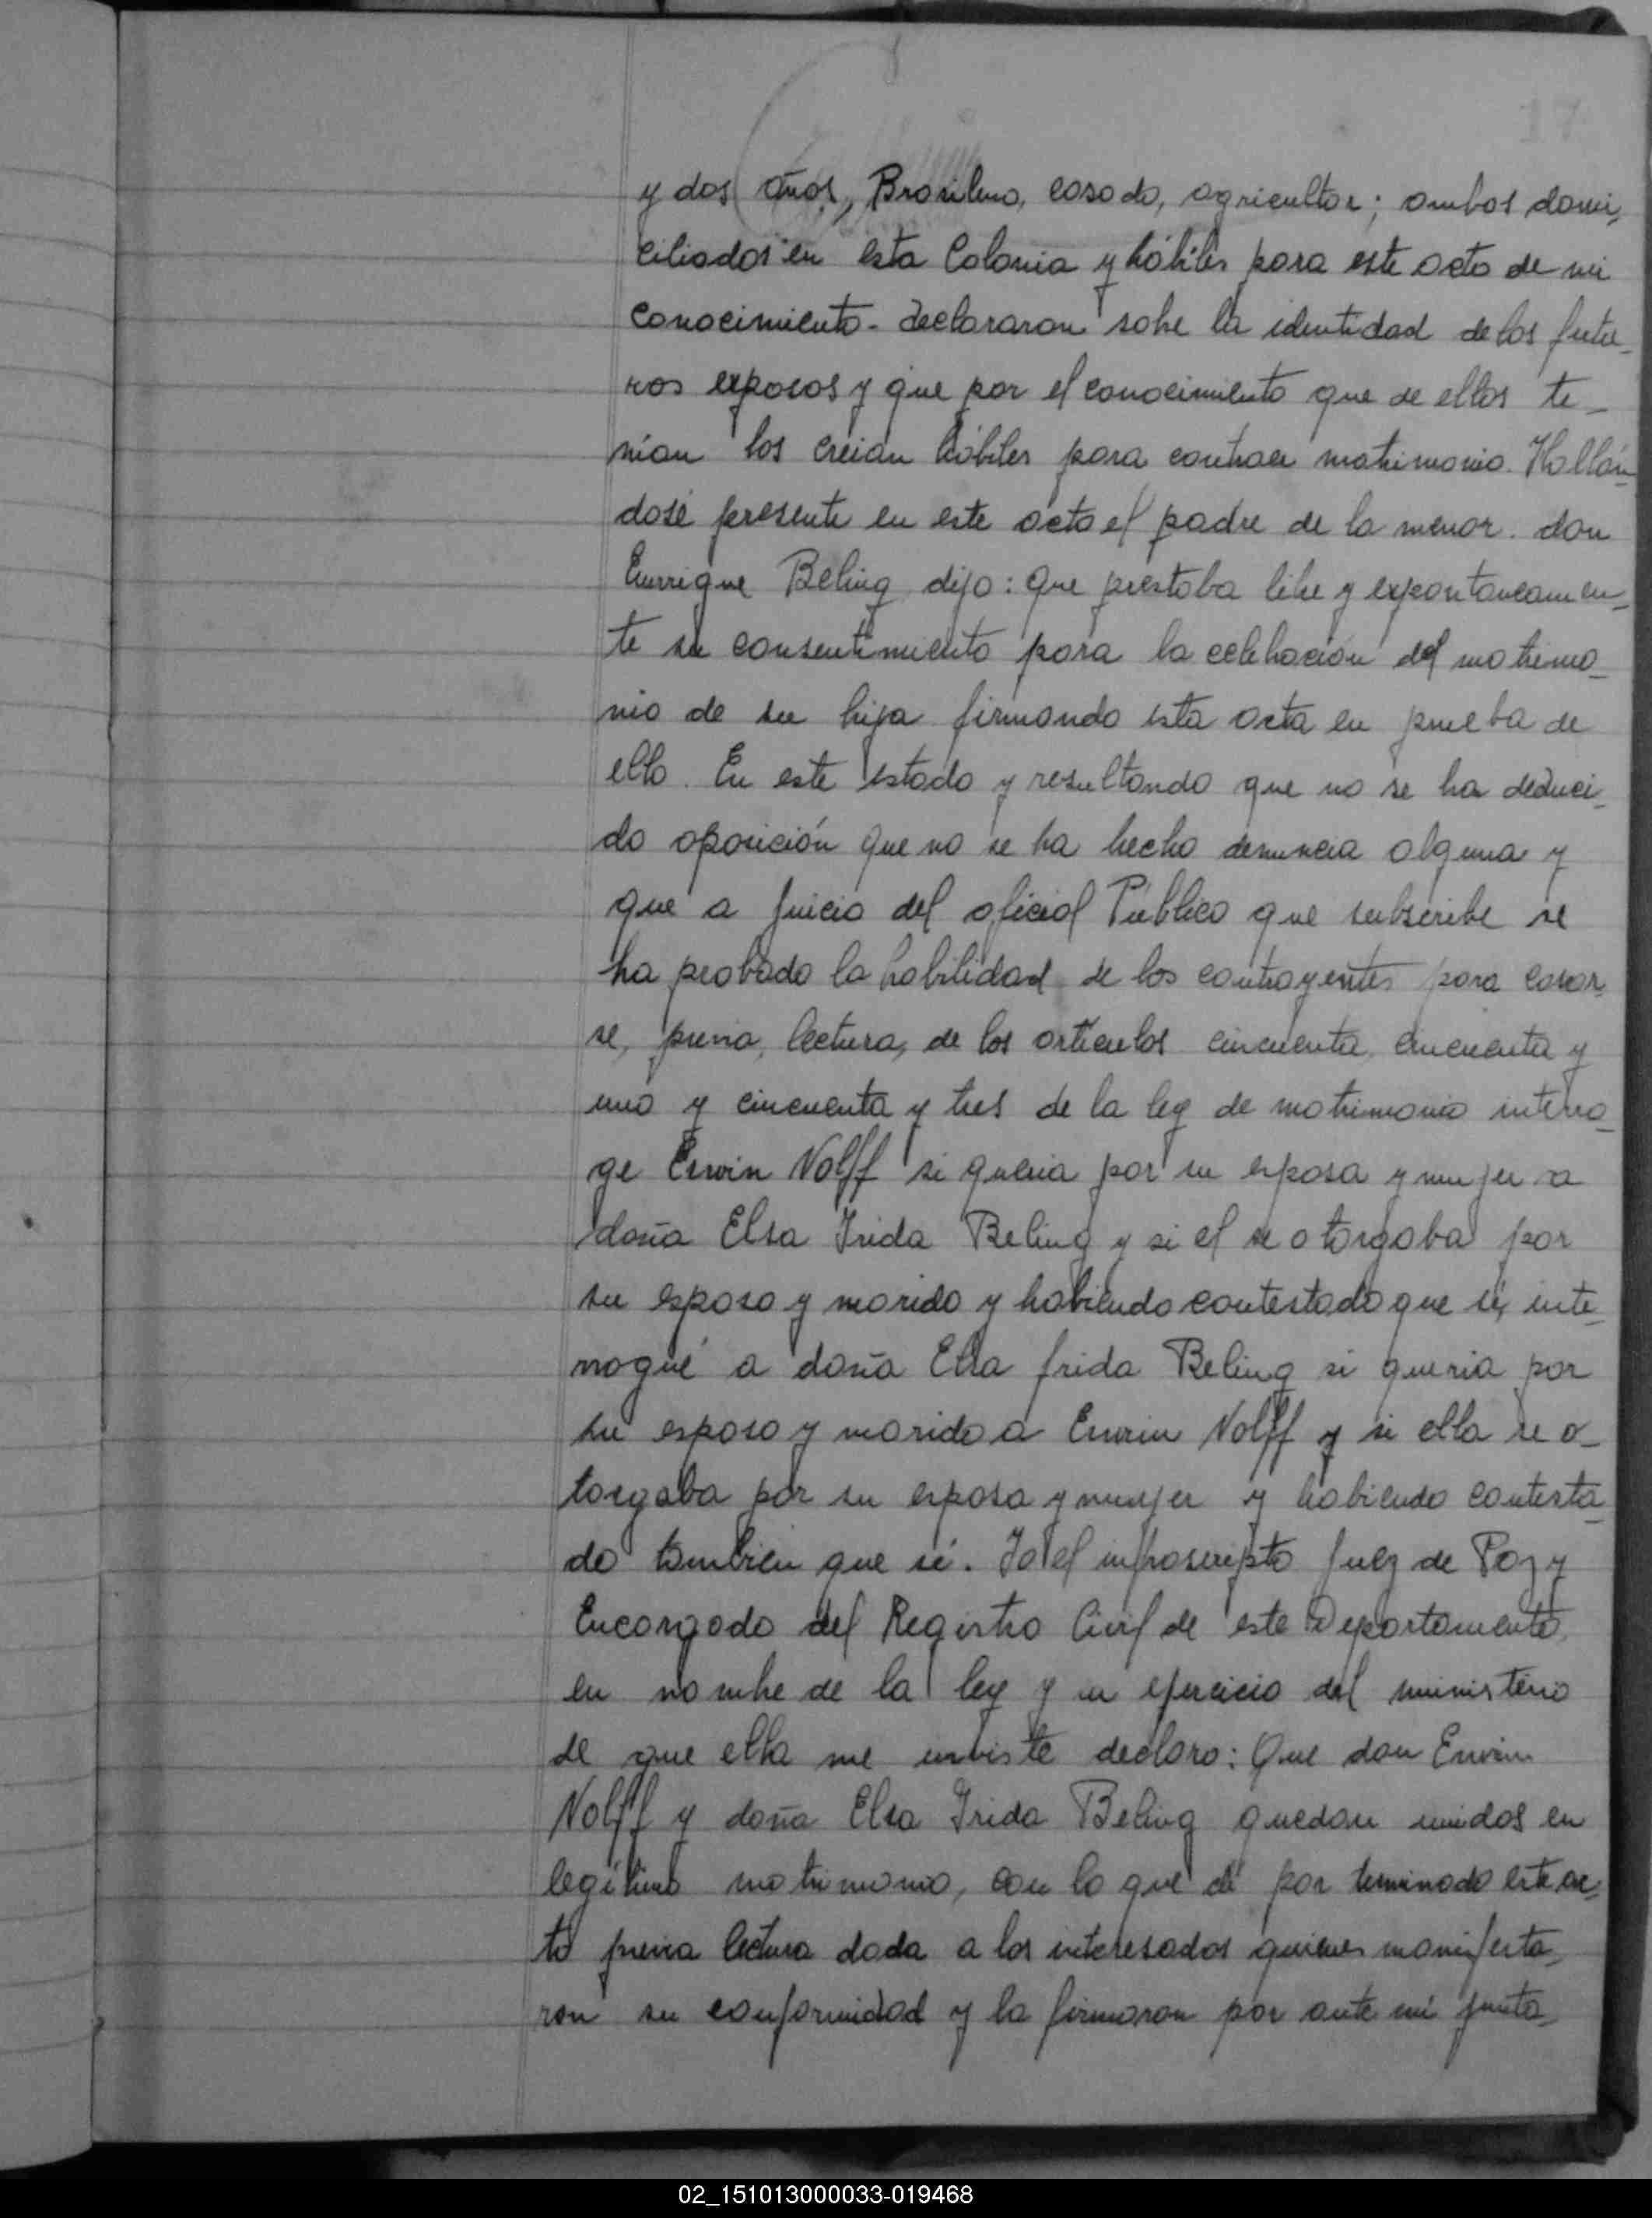 17
y dos años, Brasilero, casado, agricultor; ambos domi-
ciliados en esta Colonia y hábiles para este acto de mi
conocimiento - declararon sobre la identidad de los futu-
ros exposos y que por el conocimiento que de ellos te-
nían los creian hábiles para contraer matrimonio. Hallán-
dosé presente en este acto el padre de la menor. don
Enrrique Beling dijo: Que prestaba libre y expontaneamen-
te su consentimiento para la celebración del matrimo-
nio de su hija firmando esta acta en prueba de
ello. En este estado y resultando que no se ha deduci-
do oposición que no se ha hecho denuncia alguna y
que a juicio del oficial Público que subscribe se
ha probado la habilidad de los contrayentes para casar-
se, previa, lectura, de los artículos cincuenta, cincuenta y
uno y cincuenta y tres de la ley de matrimonio interro-
gé Erwin Nolff si queria por su esposa y mujer a
doña Elsa Frida Beling y si el se otorgaba por
su esposo y marido y habiendo contestado que sí, inte-
rrogué a doña Elsa frida Beling si queria por
su esposo y marido a Erwin Nolff y si ella se o-
torgaba por su esposa y mujer y habiendo contesta-
do tambien que sí. Yo el infrascripto Juez de Paz y
Encargado del Registro Civil de este Departamento,
en nombre de la ley y en ejercicio del ministerio
de que ella me inviste declaro: Que don Erwin
Nolff y doña Elsa Frida Beling quedan unidos en
legítimo matrimonio, con lo que dí por terminado este ac-
to previa lectura dada a los interesados quienes manifesta-
ron su conformidad y la firmaron por ante mí junta-
02_151013000033-019468